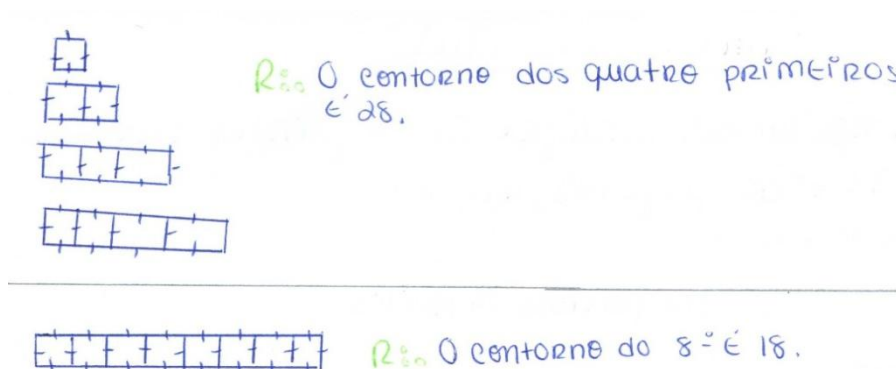 R:. O contorno dos quatro primeiros
é 28.
R:. O contorno do 8º é 18.